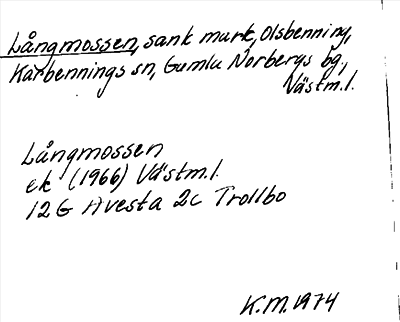 Långmossen, sank mark, Olsbenning,
Karbennings sn, Gamla Norbergs bg,
Västm.l.
Långmossen
ek (1966) Västm.l.
12G Avesta 2c Trollbo
K.M. 1974